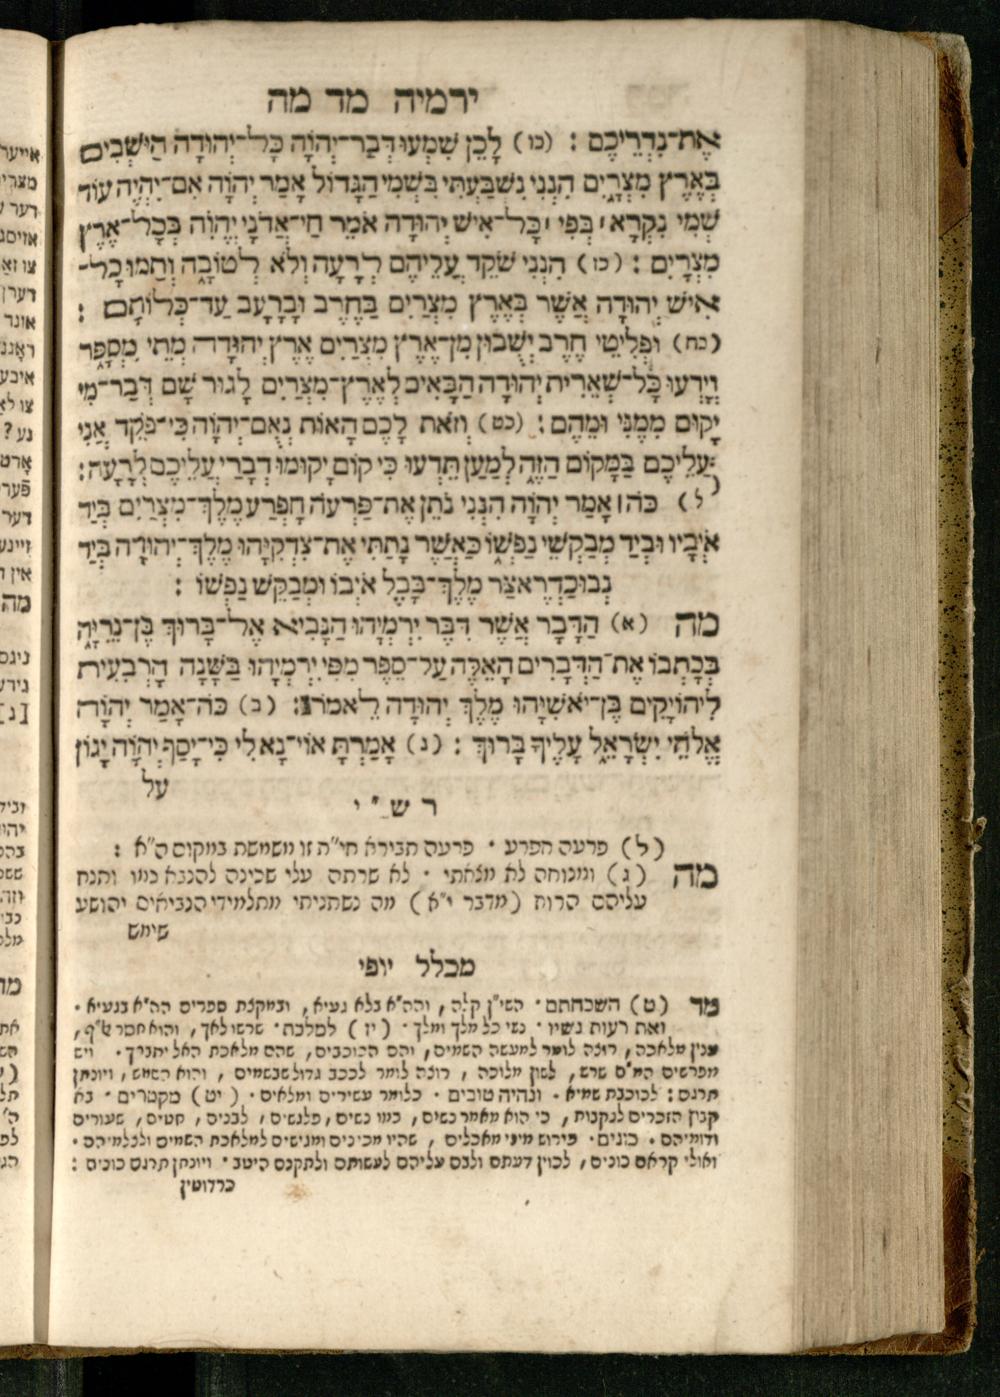 ירמיה מד מה
אֶת־נִדְרֵיכֶם : (כו) לָכֵן שִׁמְעוּ דְבַר־יְהוָֹה כָּל־יְהוּדָה הַיּשְׁבִים
בְּאֶרֶץ מִצְרָיִם הִנְנִי נִשְׁבַּעְתִּי בִּשְׁמִי הַגָּדוֹל אָמַר יְהוָֹה אִם־יִהְיֶה עוֹד
שְׁמִי נִקְרָא ׀ בְּפִי ׀ כָּל־אִישׁ יְהוּדָה אֹמֵר חַי־אֲדֹנָי יֱהֹוִה בְּכָל־אֶרֶץ
מִצְרָיִם : (כז) הִנְנִי שֹׁקֵד עֲלֵיהֶם לְרָעָה וְלֹא לְטוֹבָה וְתַמּוּ כָל־
אִישׁ יְהוּדָה אֲשֶׁר בְּאֶרֶץ מִצְרַיִם בַּחֶרֶב וּבָרָעָב עַד־כְּלוֹתָם :
(כח) וּפְלִיטֵי חֶרֶב יְשֻׁבוּן מִן־אֶרֶץ מִצְרַיִם אֶרֶץ יְהוּדָה מְתֵי מִסְפָּר
וְיָדְעוּ כָּל־שְׁאֵרִית יְהוּדָה הַבָּאִים לְאֶרֶץ־מִצְרַיִם לָגוּר שָׁם דְּבַר־מִי
יָקוּם מִמֶּנִּי וּמֵהֶם : (כט) וְזֹאת לָכֶם הָאוֹת נְאֻם־יְהוָֹה כִּי־פֹקֵד אֲנִי
עֲלֵיכֶם בַּמָּקוֹם הַזֶּה לְמַעַן תֵּדְעוּ כִּי קוֹם יָקוּמוּ דְבָרַי עֲלֵיכֶם לְרָעָה:
(ל) כֹּה ׀ אָמַר יְהוָֹה הִנְנִי נֹתֵן אֶת־פַּרְעֹה חָפְרַע מֶלֶךְ־מִצְרַיִם בְּיַד
אֹיְבָיו וּבְיַד מְבַקְשֵׁי נַפְשׁוֹ כַּאֲשֶׁר נָתַתִּי אֶת־צִדְקִיָּהוּ מֶלֶךְ־יְהוּדָה בְּיַד
נְבוּכַדְרֶאצַּר מֶלֶךְ־בָּבֶל אֹיְבוֹ וּמְבַקֵּשׁ נַפְשׁוֹ :
מה (א) הַדָּבָר אֲשֶׁר דִּבֶּר יִרְמְיָהוּ הַנָּבִיא אֶל־בָּרוּךְ בֶּן־נֵרִיָּה
בְּכָתְבוֹ אֶת־הַדְּבָרִים הָאֵלֶּה עַל־סֵפֶר מִפִּי יִרְמְיָהוּ בַּשָּׁנָה הָרְבִעִית
לִיהוֹיָקִים בֶּן־יֹאשִׁיָּהוּ מֶלֶךְ יְהוּדָה לֵאמֹר : (ב) כֹּה־אָמַר יְהוָֹה
אֱלֹהֵי יִשְׂרָאֵל עָלֶיךָ בָּרוּךְ : (ג) אָמַרְתָּ אוֹי־נָא לִי כִּי־יָסַף יְהוָֹה יָגוֹן
על
ר ש " י
(ל) פרעה חפרע · פרעה תבירא חי"ת זו משמשת במקום ה"א :
מה (ג) ומנוחה לא מצאתי · לא שרתה עלי שכינה להנבא כמו ותנח
עליהם הרוח (מדבר י"א) מה נשתניתי מתלמידי הנביאים יהושע
שימש
מכלל יופי
מד (ט) השכחתם · השי"ן קלה, והה"א בלא געיא, ובמקצת ספרים הה"א בגעיא ·
ואת רעות נשיו · נשי כל מלך ומלך · (יז) למלכת · שרשו לאך, והוא חסר
ענין מלאכה, רוצה לומר למעשה השמים, והם הכוכבים, שהם מלאכת האל יתברך · ויש
מפרשים המ"ם שרש, לשון מלוכה, רוצה לומר לככב גדול שבשמים , והוא השמש, ויונתן
תרגם : לכוכבת שמיא · ונהיה טובים · כלומר עשירים ומלאים · (יט) מקטרים · בא
קבוץ הזכרים לנקבות, כי הוא מאמר נשים, כמו נשים, פלגשים, לבנים, חטים, שעורים
ודומיהם · כונים · פירוש מיני מאכלים , שהיו מכינים ומגישים למלאכת השמים ולצלמיהם ·
ואולי קראם כונים, לכוין דעתם ולבם עליהם לעשותם ולתקנם היטב · ויונתן תרגם כונים :
כרדוטין